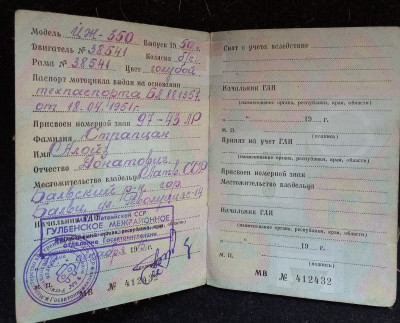 Модель ИЖ-350 Выпуск 1950 г.
Двигатель № 38541 Коляска б/к
Рама № 38541 Цвет голубой
Паспорт мотоцикла выдан на основании
техпаспорта
от 18.04.1951г.
Присвоен номерной знак 97-43 ЛР
Фамилия Страпцан
Имя Алойз
Отчество Донатович
Местожительство владельца Латв. ССР
Балвский р-н гор.
Балви, ул.
Начальник ГАИ Латвийской ССР
ГУЛБЕНСКОЕ МЕЖРАЙОННОЕ
ОТДЕЛЕНИЕ Госавтоинспекции
М. П.
МВ № 412432
Снят с учета вследствие
19 г.
Начальник ГАИ
(наименование органа, республики, края, области)
М. П. (подпись)
Принят на учет ГАИ
(наименование органа, республики, края, области)
19 г.
Присвоен номерной знак
Местожительство владельца
Начальник ГАИ
(наименование органа, республики, края, области)
19 г.
М. П. (подпись)
МВ № 412432